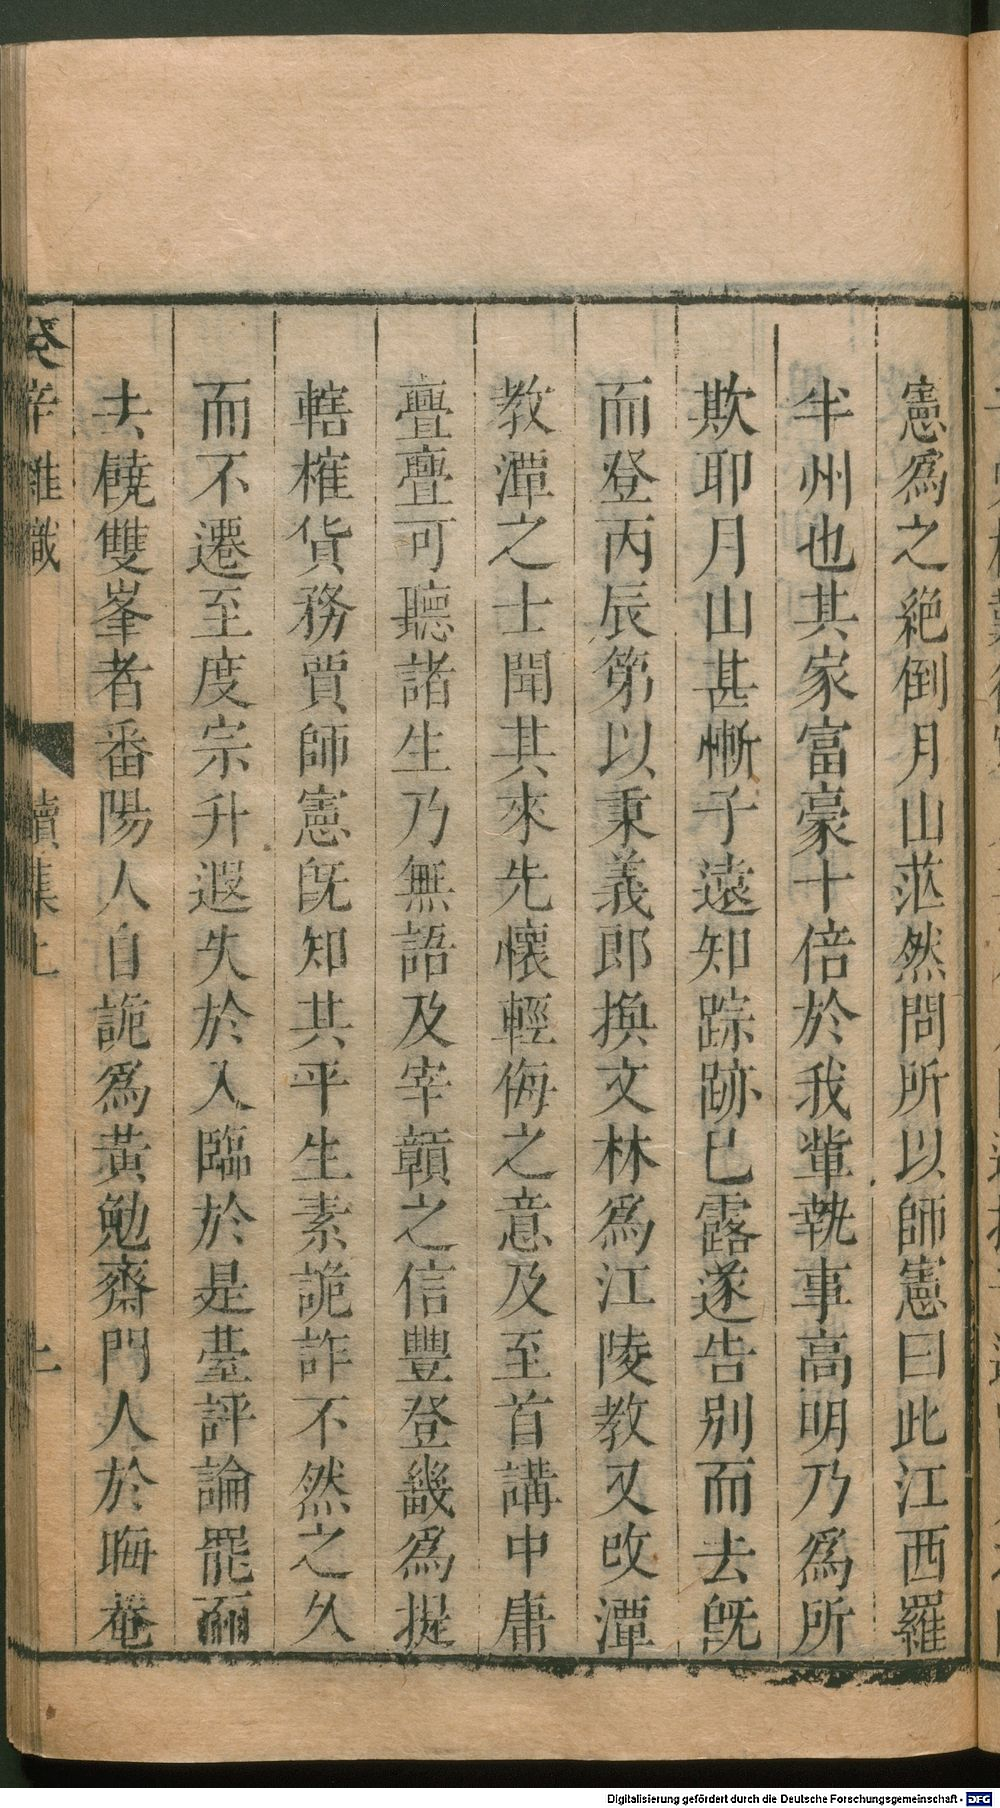 憲爲之絶倒月山茫然問所以師憲曰此江西羅
半州也其家富豪十倍於我軰執事高明乃爲所
欺耶月山甚慚子遠知踪跡已露遂告别而去旣
而登丙辰第以秉義郎換文林爲江陵教又攺潭
教潭之士聞其來先懷輕侮之意及至首講中庸
亹亹可聽諸生乃無語及宰贑之信豐登畿爲提
轄榷貨務賈師憲旣知其平生素詭詐不然之久
而不遷至度宗升遐失於入臨於是臺評論罷爾
去饒雙峯者番陽人自詭爲黃勉齋門人於晦菴
癸辛雜識
續集上
上
Digitalisierung gefördert durch die Deutsche Forschungsgemeinschaft - DFG